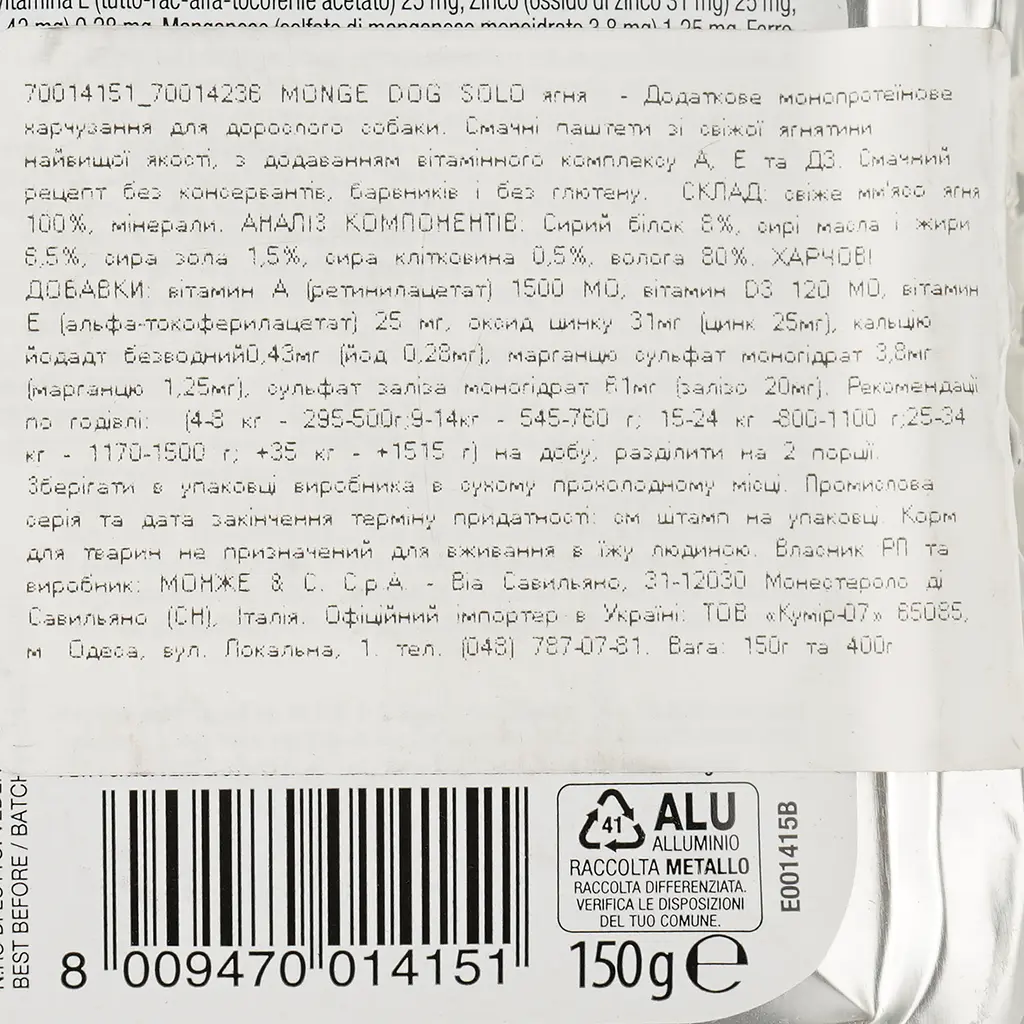 vitamina E (tutto-rac-alfa-tocoferile acetato) 25 mg, Zinco (ossido di zinco 31 mg) 25 mg,
mg) 0,28 mg, Manganese (solfato di manganese monoidrato 3,8 mg) 1,25 mg, Ferro
70014151_70014236 MONGE DOG SOLO ягня - Додаткове монопротеїнове
харчування для дорослого собаки. Смачні паштети зі свіжої ягнятини
найвищої якості, з додаванням вітамінного комплексу А, Е та Д3. Смачний
рецепт без консервантів, барвників і без глютену. СКЛАД: свіже мм'ясо ягня
100%, мінерали. АНАЛІЗ КОМПОНЕНТІВ: Сирий білок 8%, сирі масла і жири
6,5%, сира зола 1,5%, сира клітковина 0,5%, волога 80%. ХАРЧОВІ
ДОБАВКИ: вітамин А (ретинилацетат) 1500 МО, вітамин D3 120 МО, вітамин
Е (альфа-токоферилацетат) 25 мг, оксид цинку 31мг (цинк 25мг), кальцію
йодадт безводний0,43мг (йод 0,28мг), марганцю сульфат моногідрат 3,8мг
(марганцю 1,25мг), сульфат заліза моногідрат 61мг (залізо 20мг). Рекомендації
по годівлі: (4-8 кг - 295-500г;9-14кг - 545-760 г; 15-24 кг -800-1100 г;25-34
кг - 1170-1500 г; +35 кг - +1515 г) на добу, разділити на 2 порції.
Зберігати в упаковці виробника в сухому прохолодному місці. Промислова
серія та дата закінчення терміну придатності: см штамп на упаковці. Корм
для тварин не призначений для вживання в їжу людиною. Власник РП та
виробник: МОНЖЕ & С. С.р.А. - Віа Савильяно, 31-12030 Монестероло ді
Савильяно (CH), Італія. Офіційний імпортер в Україні: ТОВ «Кумір-07» 65085,
м Одеса, вул. Локальна, 1. тел. (048) 787-07-81. Вага: 150г та 400г
BEST BEFORE / BATCH
41
ALU
ALLUMINIO
RACCOLTA METALLO
RACCOLTA DIFFERENZIATA.
VERIFICA LE DISPOSIZIONI
DEL TUO COMUNE.
E001415B
150g e
8 009470 014151